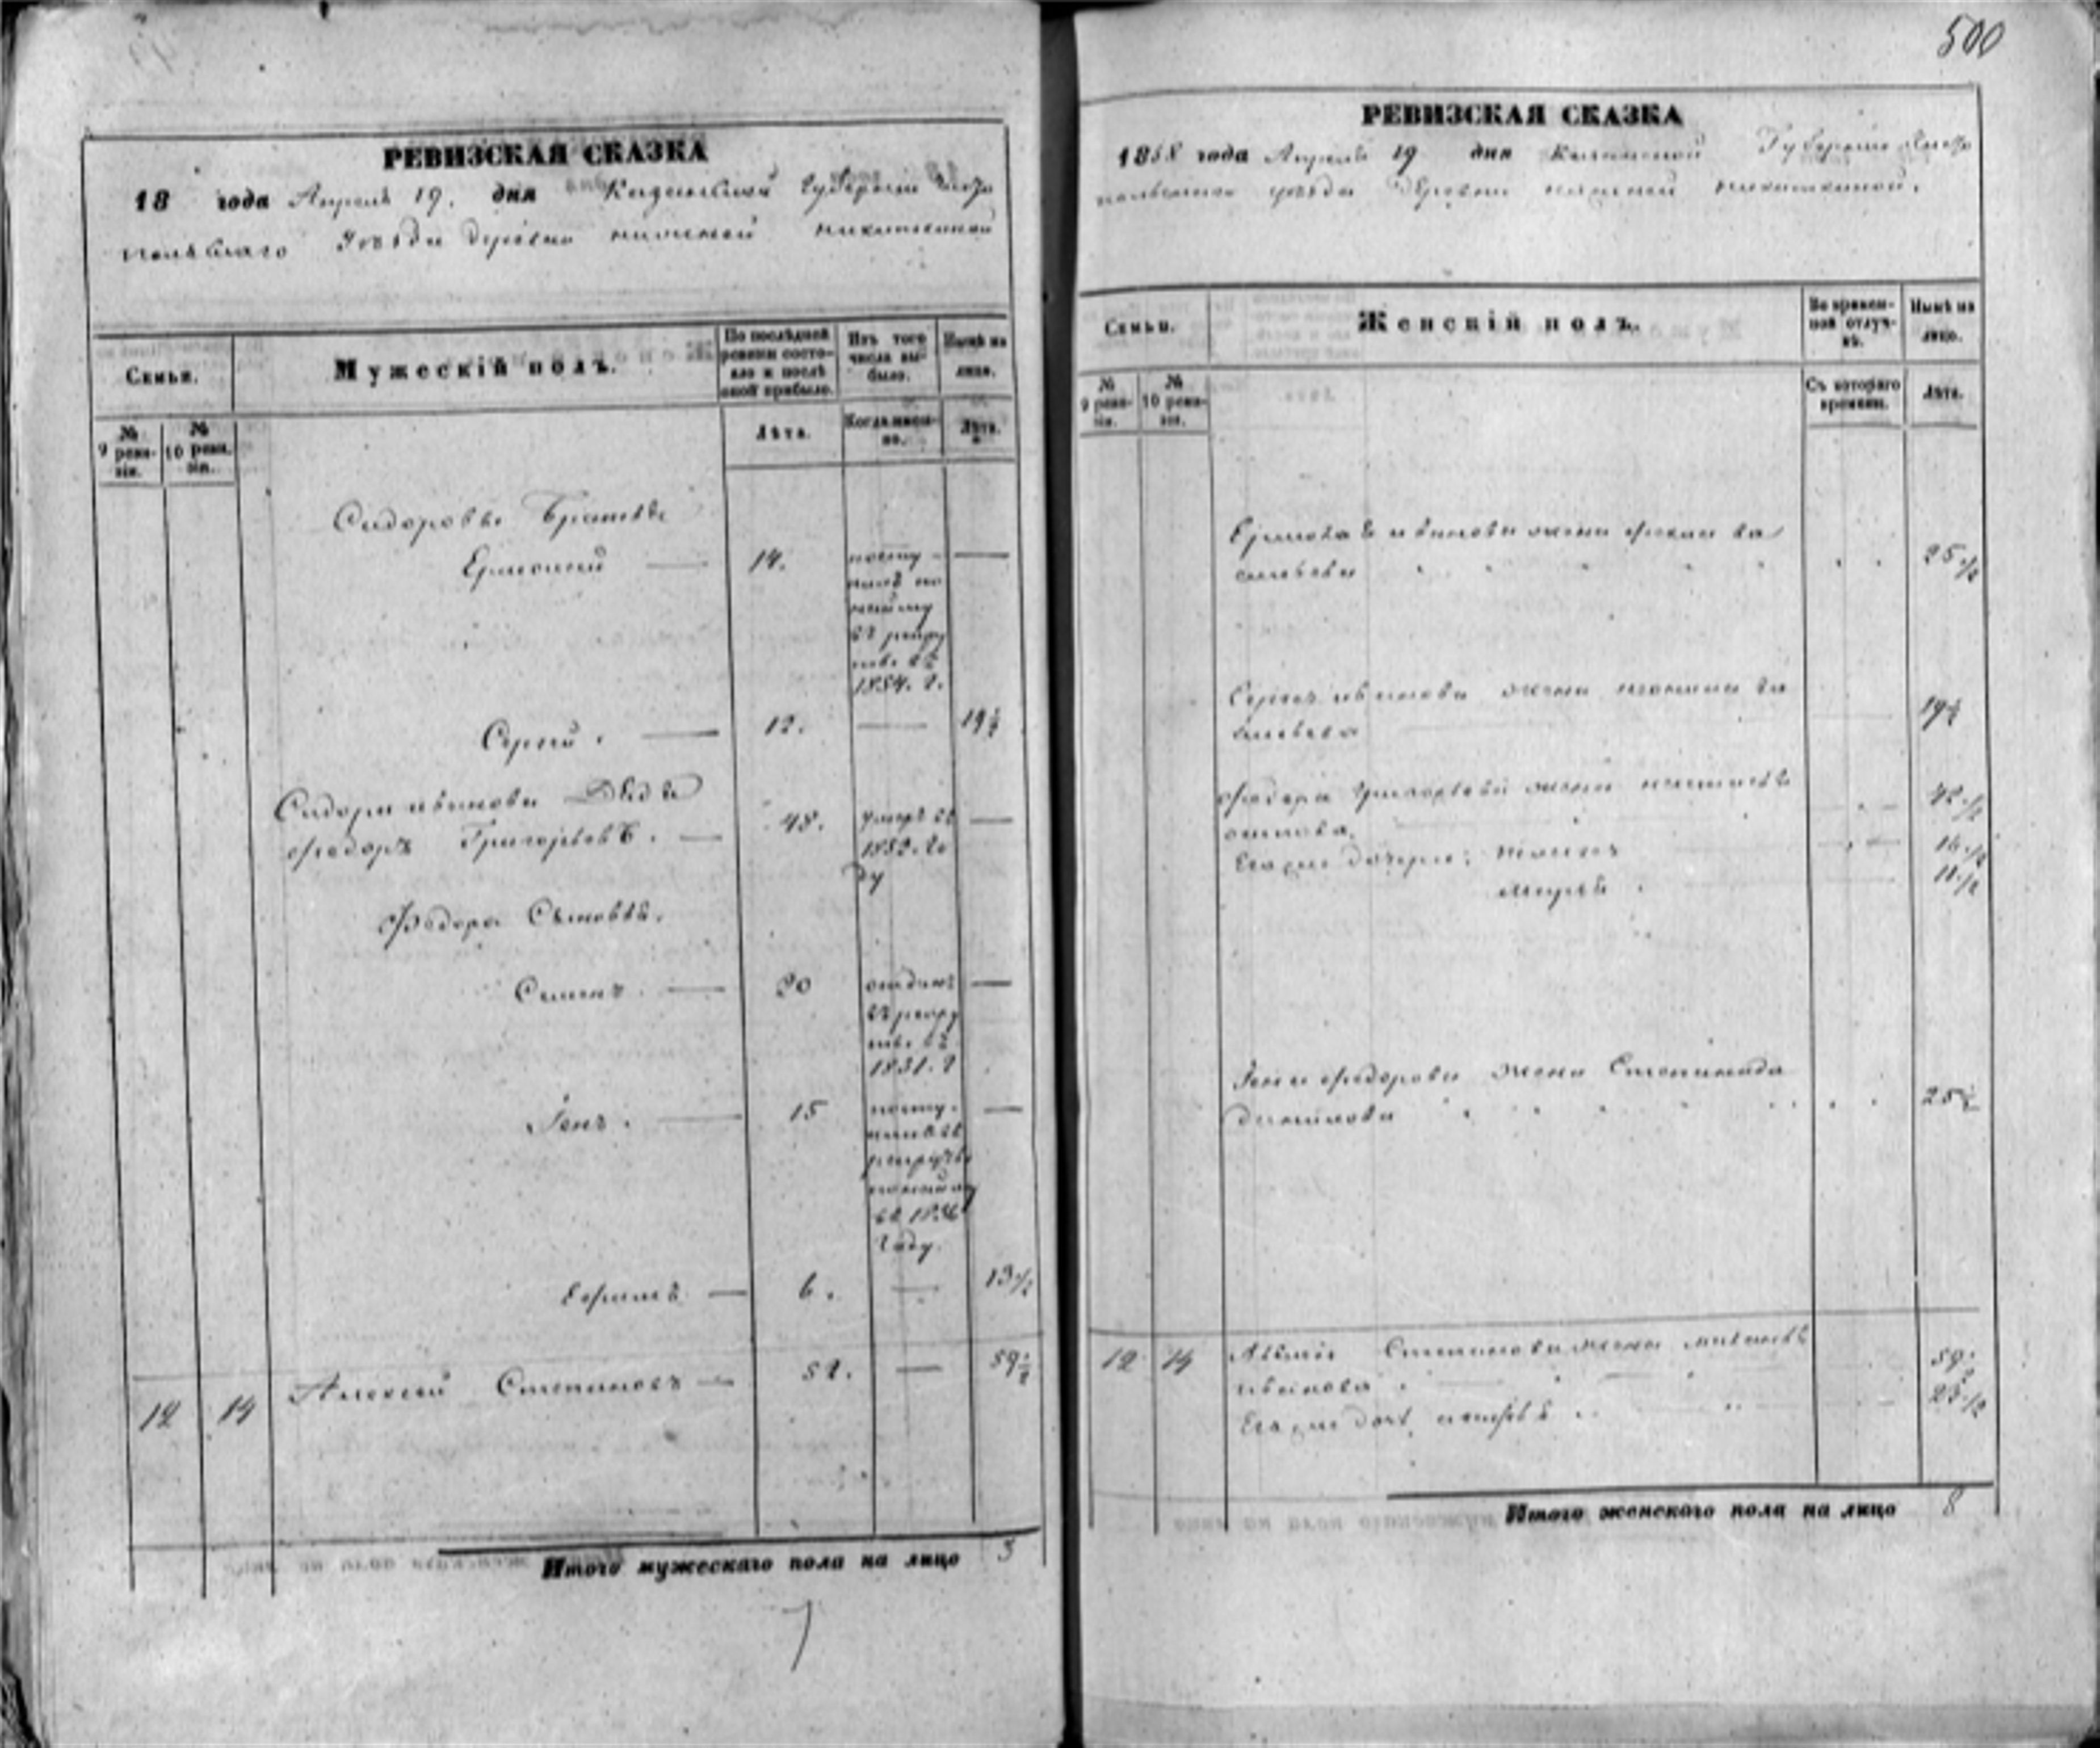 500
РЕВИЗСКАЯ СКАЗКА
18 года Апреля 19. дня Казанской губернии Чисто
польскаго Уезда деревни нижней никиткиной
Семьи.
Мужескій полъ.
По послѣдней ревизіи состо-
яло и послѣ
оной прибыло.
Изъ того
числа вы-
было.
Нынѣ на
лицо.
№
9 реви-
зіи.
№
10 реви-
зіи.
Лѣта.
Когда имен-
но.
Лѣта.
Сидоровы Братья
Ермолай — 14. посту- —
пилъ по
найму
въ рекру
ты въ
1854. г.
Сергей. — 12. — 19½
Сидора иванова Дядя
Федоръ Григорьевъ. — 48. умеръ въ —
1852. го
ду
Федора Сыновья.
Семенъ — 20 отданъ —
въ рекру
ты въ
1851. г
— 15 посту- —
въ
рекруты
1856
году.
Ефимъ — 6. — 13½
12 14 Алексей Степановъ — 52. — 59½
Итого мужескаго пола на лицо 3
7
РЕВИЗСКАЯ СКАЗКА
1858 года Апреля 19 дня Казанской Губернии Чисто
польскаго уезда Деревни нижней никиткиной.
Семьи.
Женскій полъ.
Во времен-
ной отлуч-
кѣ.
Нынѣ на
лицо.
№
9 реви-
зіи.
№
10 реви-
зіи.
Съ котораго
времени.
Лѣта.
Ермолая иванова жена ва
сильева 25½
Сергея иванова жена ва
сильева 19½
Федора Григорьева жена 42½
Его же дочери: 16½
марья 11½
федорова жена Степанида
данилова 25½
12 14 Алексея Степанова жена
иванова 59½
Его же доч. 25½
Итого женскаго пола на лицо 8